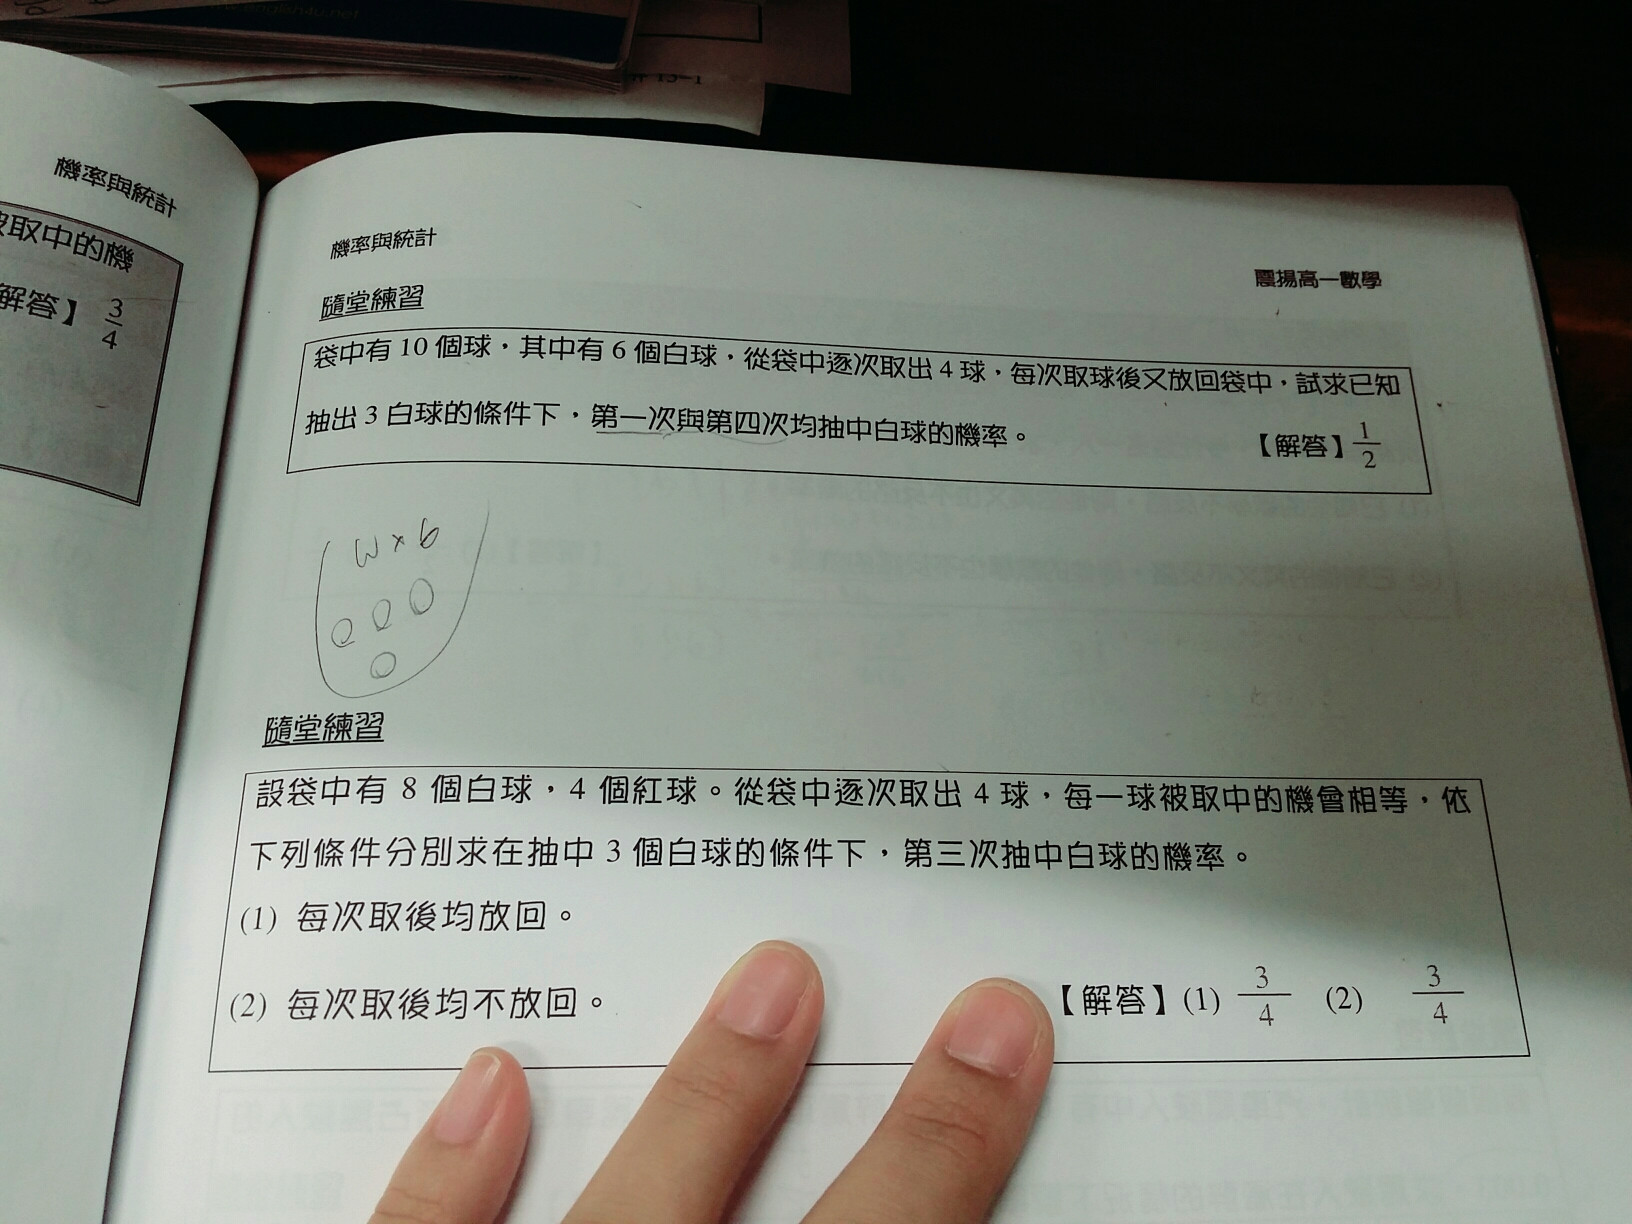 機率與統計
被取中的機
解答】3/4
機率與統計
震揚高一數學
隨堂練習
袋中有 10 個球，其中有 6 個白球，從袋中逐次取出 4 球，每次取球後又放回袋中，試求已知
抽出 3 白球的條件下，第一次與第四次均抽中白球的機率。
【解答】1/2
W × 6
隨堂練習
設袋中有 8 個白球，4 個紅球。從袋中逐次取出 4 球，每一球被取中的機會相等，依
下列條件分別求在抽中 3 個白球的條件下，第三次抽中白球的機率。
(1) 每次取後均放回。
(2) 每次取後均不放回。
【解答】(1) 3/4 (2) 3/4